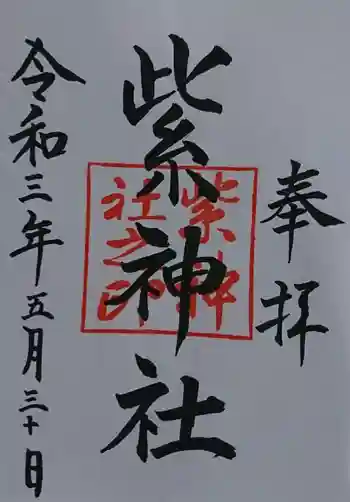 奉拝
紫神社
紫神
社之印
令和三年五月三十日